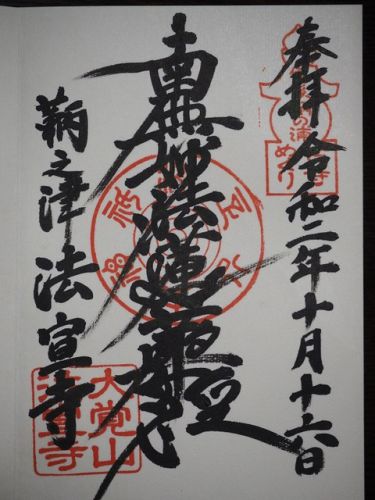 奉拝 令和二年十月十六日
南無妙法蓮華経
鞆之津 法宣寺
大覚山
法宣寺